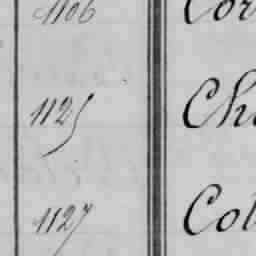 1106 Cor
1125 Cha
1127 Col